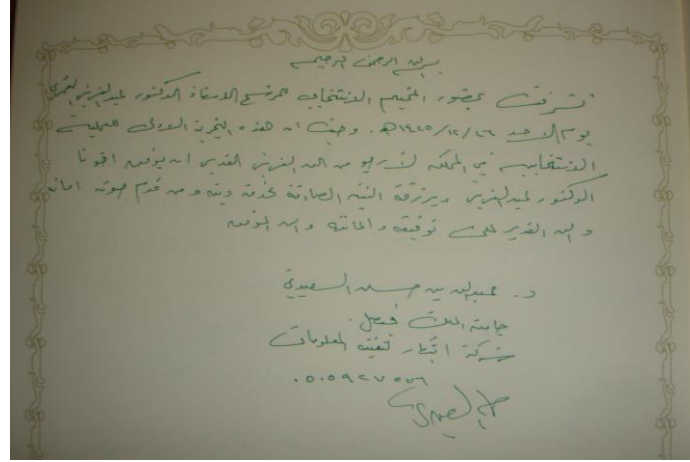 بسم الله الرحمن الرحيم
تشرفت بحضور المخيم الانتخابي للمرشح الاستاذ الدكتور عبدالعزيز العمري
يوم الاحد ٢٦/١٢/١٤٢٥هـ. وحيث ان هذه التجربة الاولى لعملية
الانتخابات في المملكة لأرجو من الله العزيز القدير ان يوفق اخونا
الدكتور عبدالعزيز ويرزقه النية الصادقة لخدمة دينه ومن قدم صوته امانة
والله القدير على توفيقه واعانته والله الموفق
د. عبدالله بن حسين السعيدي
جامعة الملك فيصل.
شركة ابتكار لتقنية المعلومات